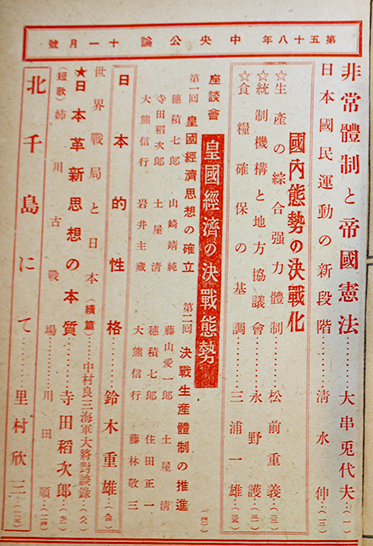 第五十八年 中央公論 十一月號
非常體制と帝國憲法……大串兎代夫…(一)
日本國民運動の新段階……清水伸…(三)
國內態勢の決戰化
☆生產の綜合强力體制……松前重義
☆統制機構と地方協議會……永野護
☆食糧確保の基調……三浦一雄
座談會 皇國經濟の決戰態勢
第一回 皇國經濟思想の確立
穗積七郎 山崎靖純
寺田稻次郎 土屋清
大熊信行 岩井主藏
第二回 決戰生產體制の推進
藤山愛一郎 土屋清
穗積七郎 住田正一
大熊信行 藤林敬三
日本的性格……鈴木重雄
世界戰局と日本(續篇)……中村良三海軍大將對談錄
★日本革新思想の本質……寺田稻次郎
(短歌)姉川古戰場……川田順
北千島にて……里村欣三